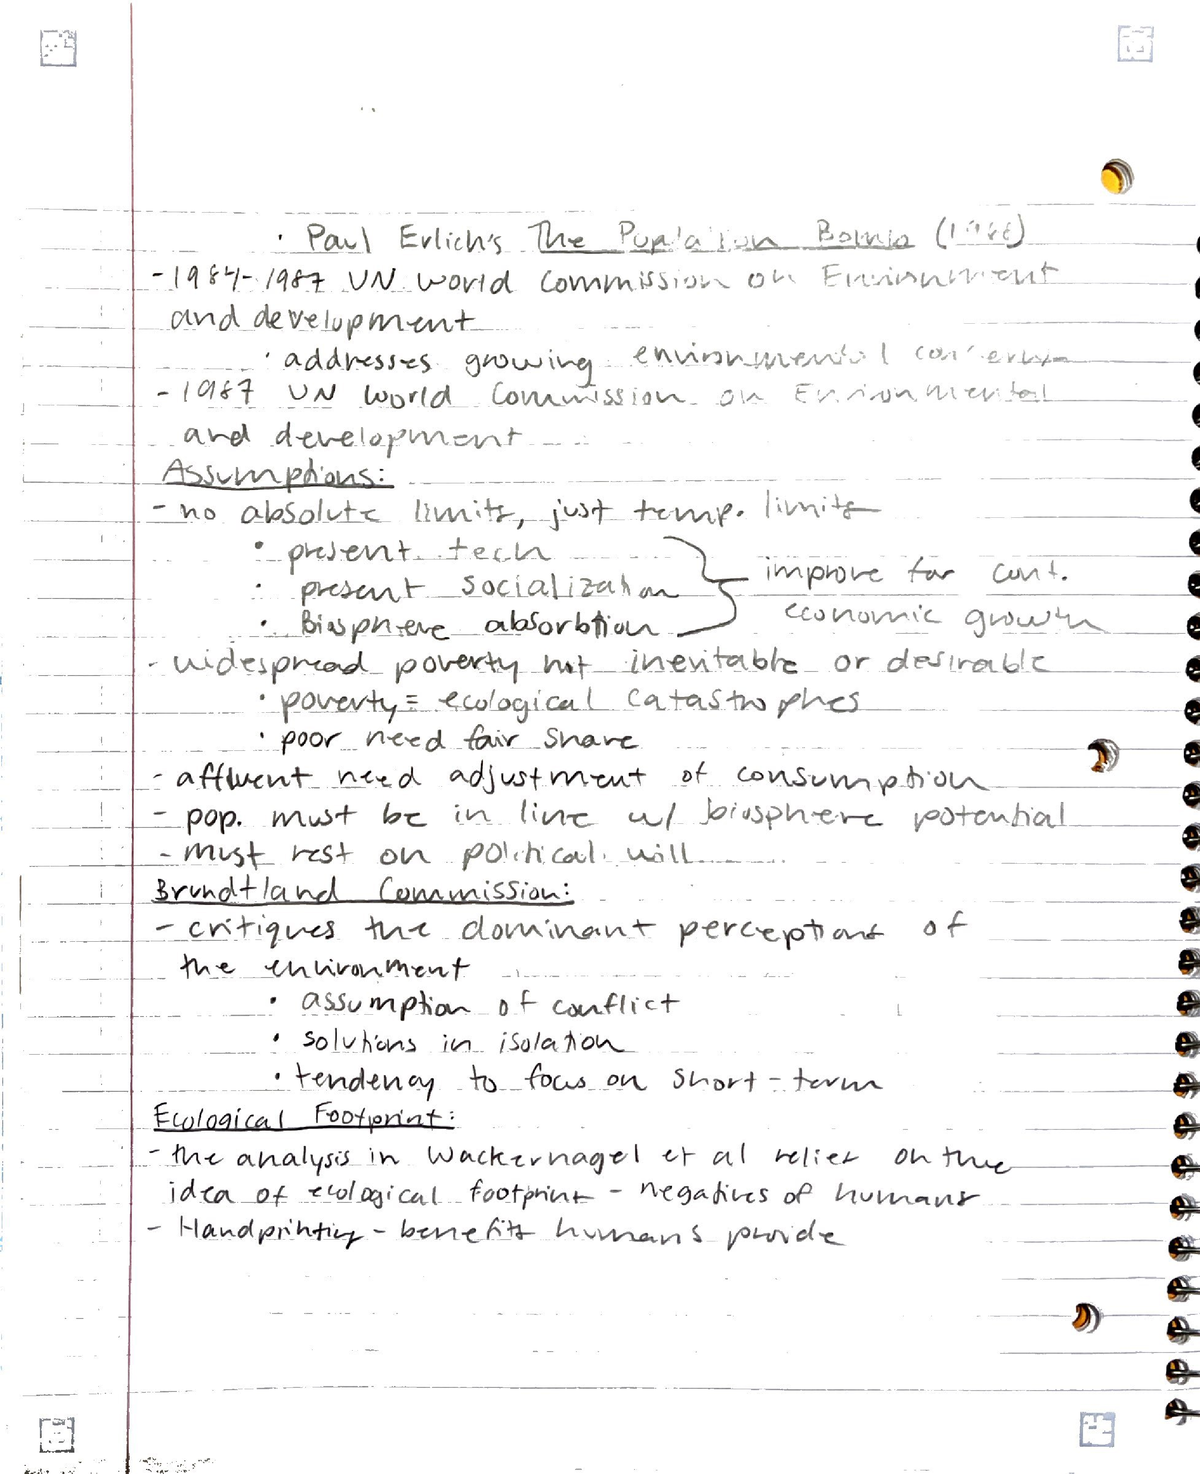 · Paul Erlich's The Pop'lation Bomb
- 1984-1987 UN World Commission on Environment
and development
· addresses growing environmental concerns
- 1987 UN World Commission on Environmental
and development
Assumptions:
- no absolute limits, just temp. limits
• present tech
· present socialization } improve for cont.
• Biosphere absorbtion economic growth
- widespread poverty not inevitable or desirable
· poverty = ecological catastrophes
· poor need fair share
- affluent need adjustment of consumption
- pop. must be in line w/ biosphere potential
- must rest on political will
Brundtland Commission:
- critiques the dominant perceptions of
the environment
• assumption of conflict
• solutions in isolation
• tendency to focus on short-term
Ecological Footprint:
- the analysis in Wackernagel et al relies on the
idea of ecological footprint - negatives of humans
- Handprinting - benefits humans provide